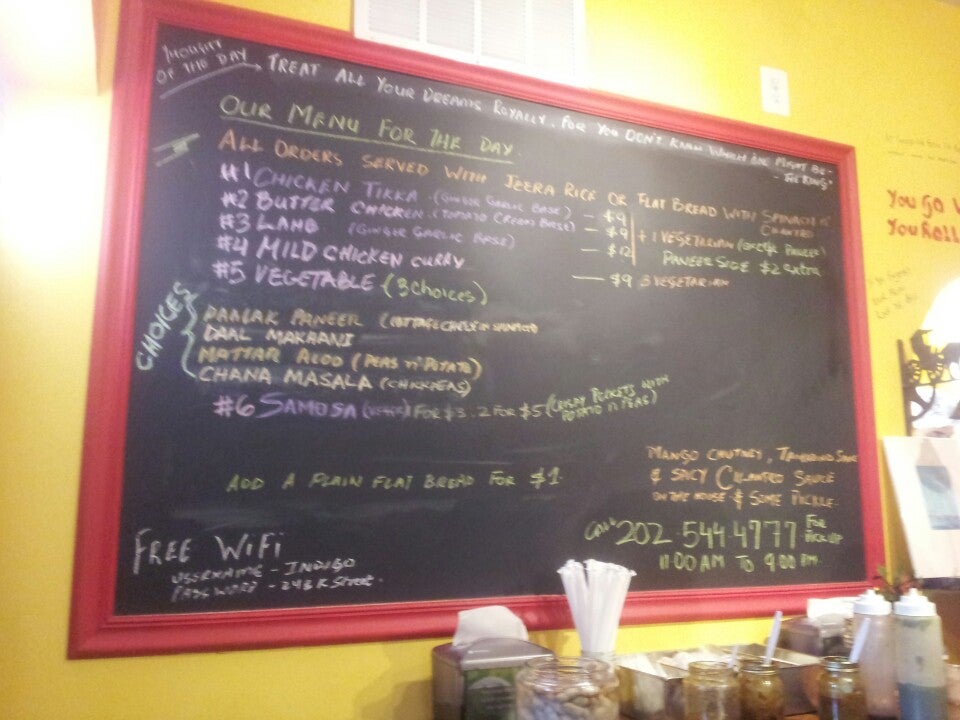 THOUGHT
OF THE DAY
TREAT ALL YOUR DREAMS ROYALLY, FOR YOU DON'T KNOW WHICH ONE MIGHT BE
"THE KING"
OUR MENU FOR THE DAY
ALL ORDERS SERVED WITH JEERA RICE OR FLAT BREAD WITH SPINACH N'
CILANTRO
#1 CHICKEN TIKKA (GINGER GARLIC BASE) - $9
#2 BUTTER CHICKEN (TOMATO CREAM BASE) - $9
#3 LAMB (GINGER GARLIC BASE) - $12
+ 1 VEGETARIAN
PANEER SIDE $2 extra
#4 MILD CHICKEN CURRY
#5 VEGETABLE (3 Choices) - $9 3 VEGETARIAN
CHOICES
PAALAK PANEER (COTTAGE CHEESE IN SPINACH)
DAAL MAKAANI
MATTAR ALOO (PEAS N' POTATO)
CHANA MASALA (CHICKPEAS)
#6 SAMOSA FOR $3. 2 FOR $5 (CRISPY POCKETS WITH
POTATO N' PEAS)
ADD A PLAIN FLAT BREAD FOR $1
MANGO CHUTNEY, TAMARIND SAUCE
& SPICY CILANTRO SAUCE
ON THE HOUSE & SOME PICKLE.
CALL 202.544.4777 FOR
PICK UP
11:00 AM TO 9:00 PM.
FREE WIFI
USERNAME - INDIGO
PASSWORD - 243 K Street.
You GO
You Roll